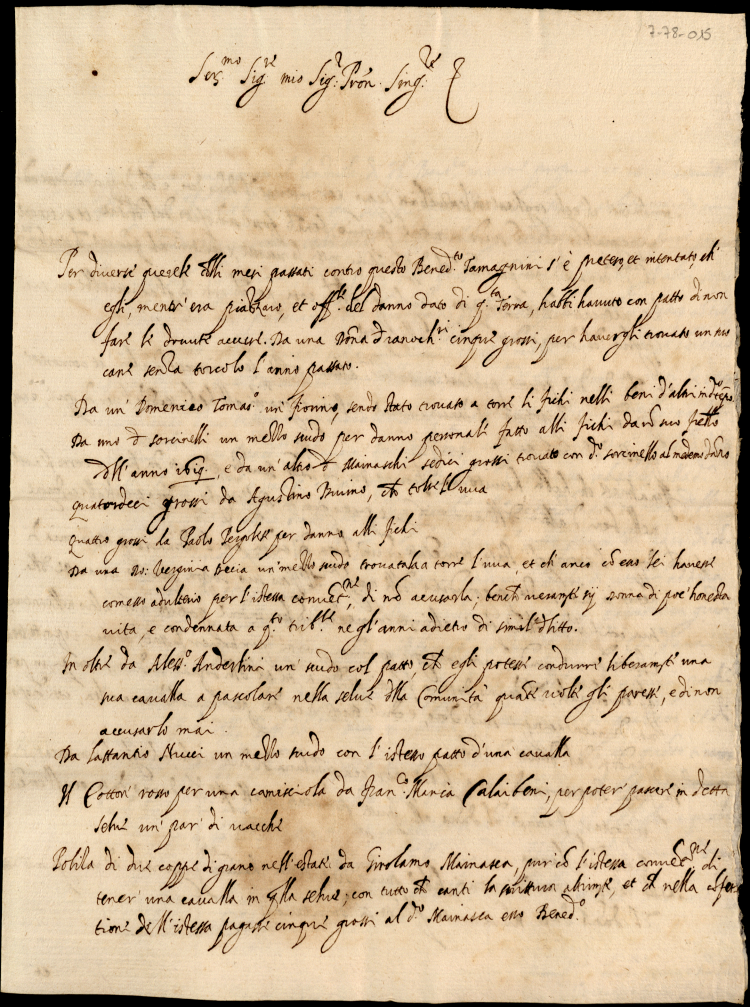 7-78-015
Ser.mo Sig.re mio Sig.r Prōn. Sing.re
Per diverse querele dlli mesi passati contro questo Bened.to Tamagnini s'è preteso, et intentato, ch'
egli, mentr'era piazzaro, et off.le del danno dato di q.ta Terra, habbi havuto con patto di non
fare le dovute accuse. Da una Dōna cinque grossi, per havergli trovato un suo
cane senza torcolo l'anno passato.
Da un' Domenico Tomas.o un fiorino, sendo stato trovato a torre li fichi nelli beni d'altri
Da uno d Sorcinelli un mezzo scudo per danno personale fatto alli fichi da
dll'anno e da un'altro d Mainaschi sedici grossi trovato con d.o Sorcinello al
quatordeci grossi da Agustino ch tolse l'uva
quattro grossi da Paolo per danno alli fichi
Da una Verginia un'mezzo scudo trovatala a torre l'uva, et ch'anco cō esso lei havesse
comesso adulterio per l'istessa ne, di nō accusarla; bench sij donna di poc'honesta
vita, e condennata a q.to trib.le negl'anni adietro di simil dlitto.
In oltre da Aless.o Anderlini un'scudo col patto, ch egli potesse condurre una
sua cavalla a pascolare nella selve dlla Comunità quante volte gli paresse, e di non
accusarlo mai.
Da Lattantio Nucci un mezzo scudo con l'istesso patto d'una cavalla
Il Cottore rosso per una camisciola da Fran.co Maria per poter' pascere in detta
selve un' par' di vacche
di due coppe di grano nell'estate da Girolamo Mainasca, pur cō l'istessa ne di
tener' una cavalla in qlla selve; con tutto ch canti la scrittura et ch nella
tione dell'istessa pagasse cinque grossi al d.o Mainasca esso Bened.o